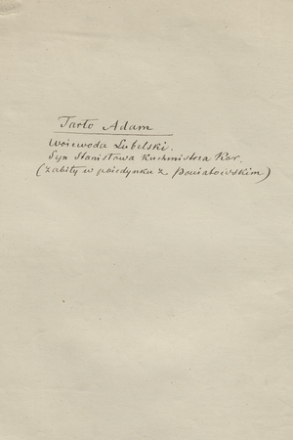 Tarło Adam
Wojewoda Lubelski.
Syn Stanisława Kuchmistrza Kor.
(zabity w pojedynku z Poniatowskim)